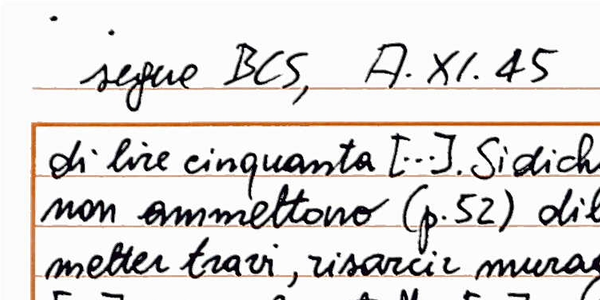 segue BCS, A. XI. 45
di lire cinquanta [...]. Si dich
non ammettono (p. 52) di
metter travi, risarcir mura